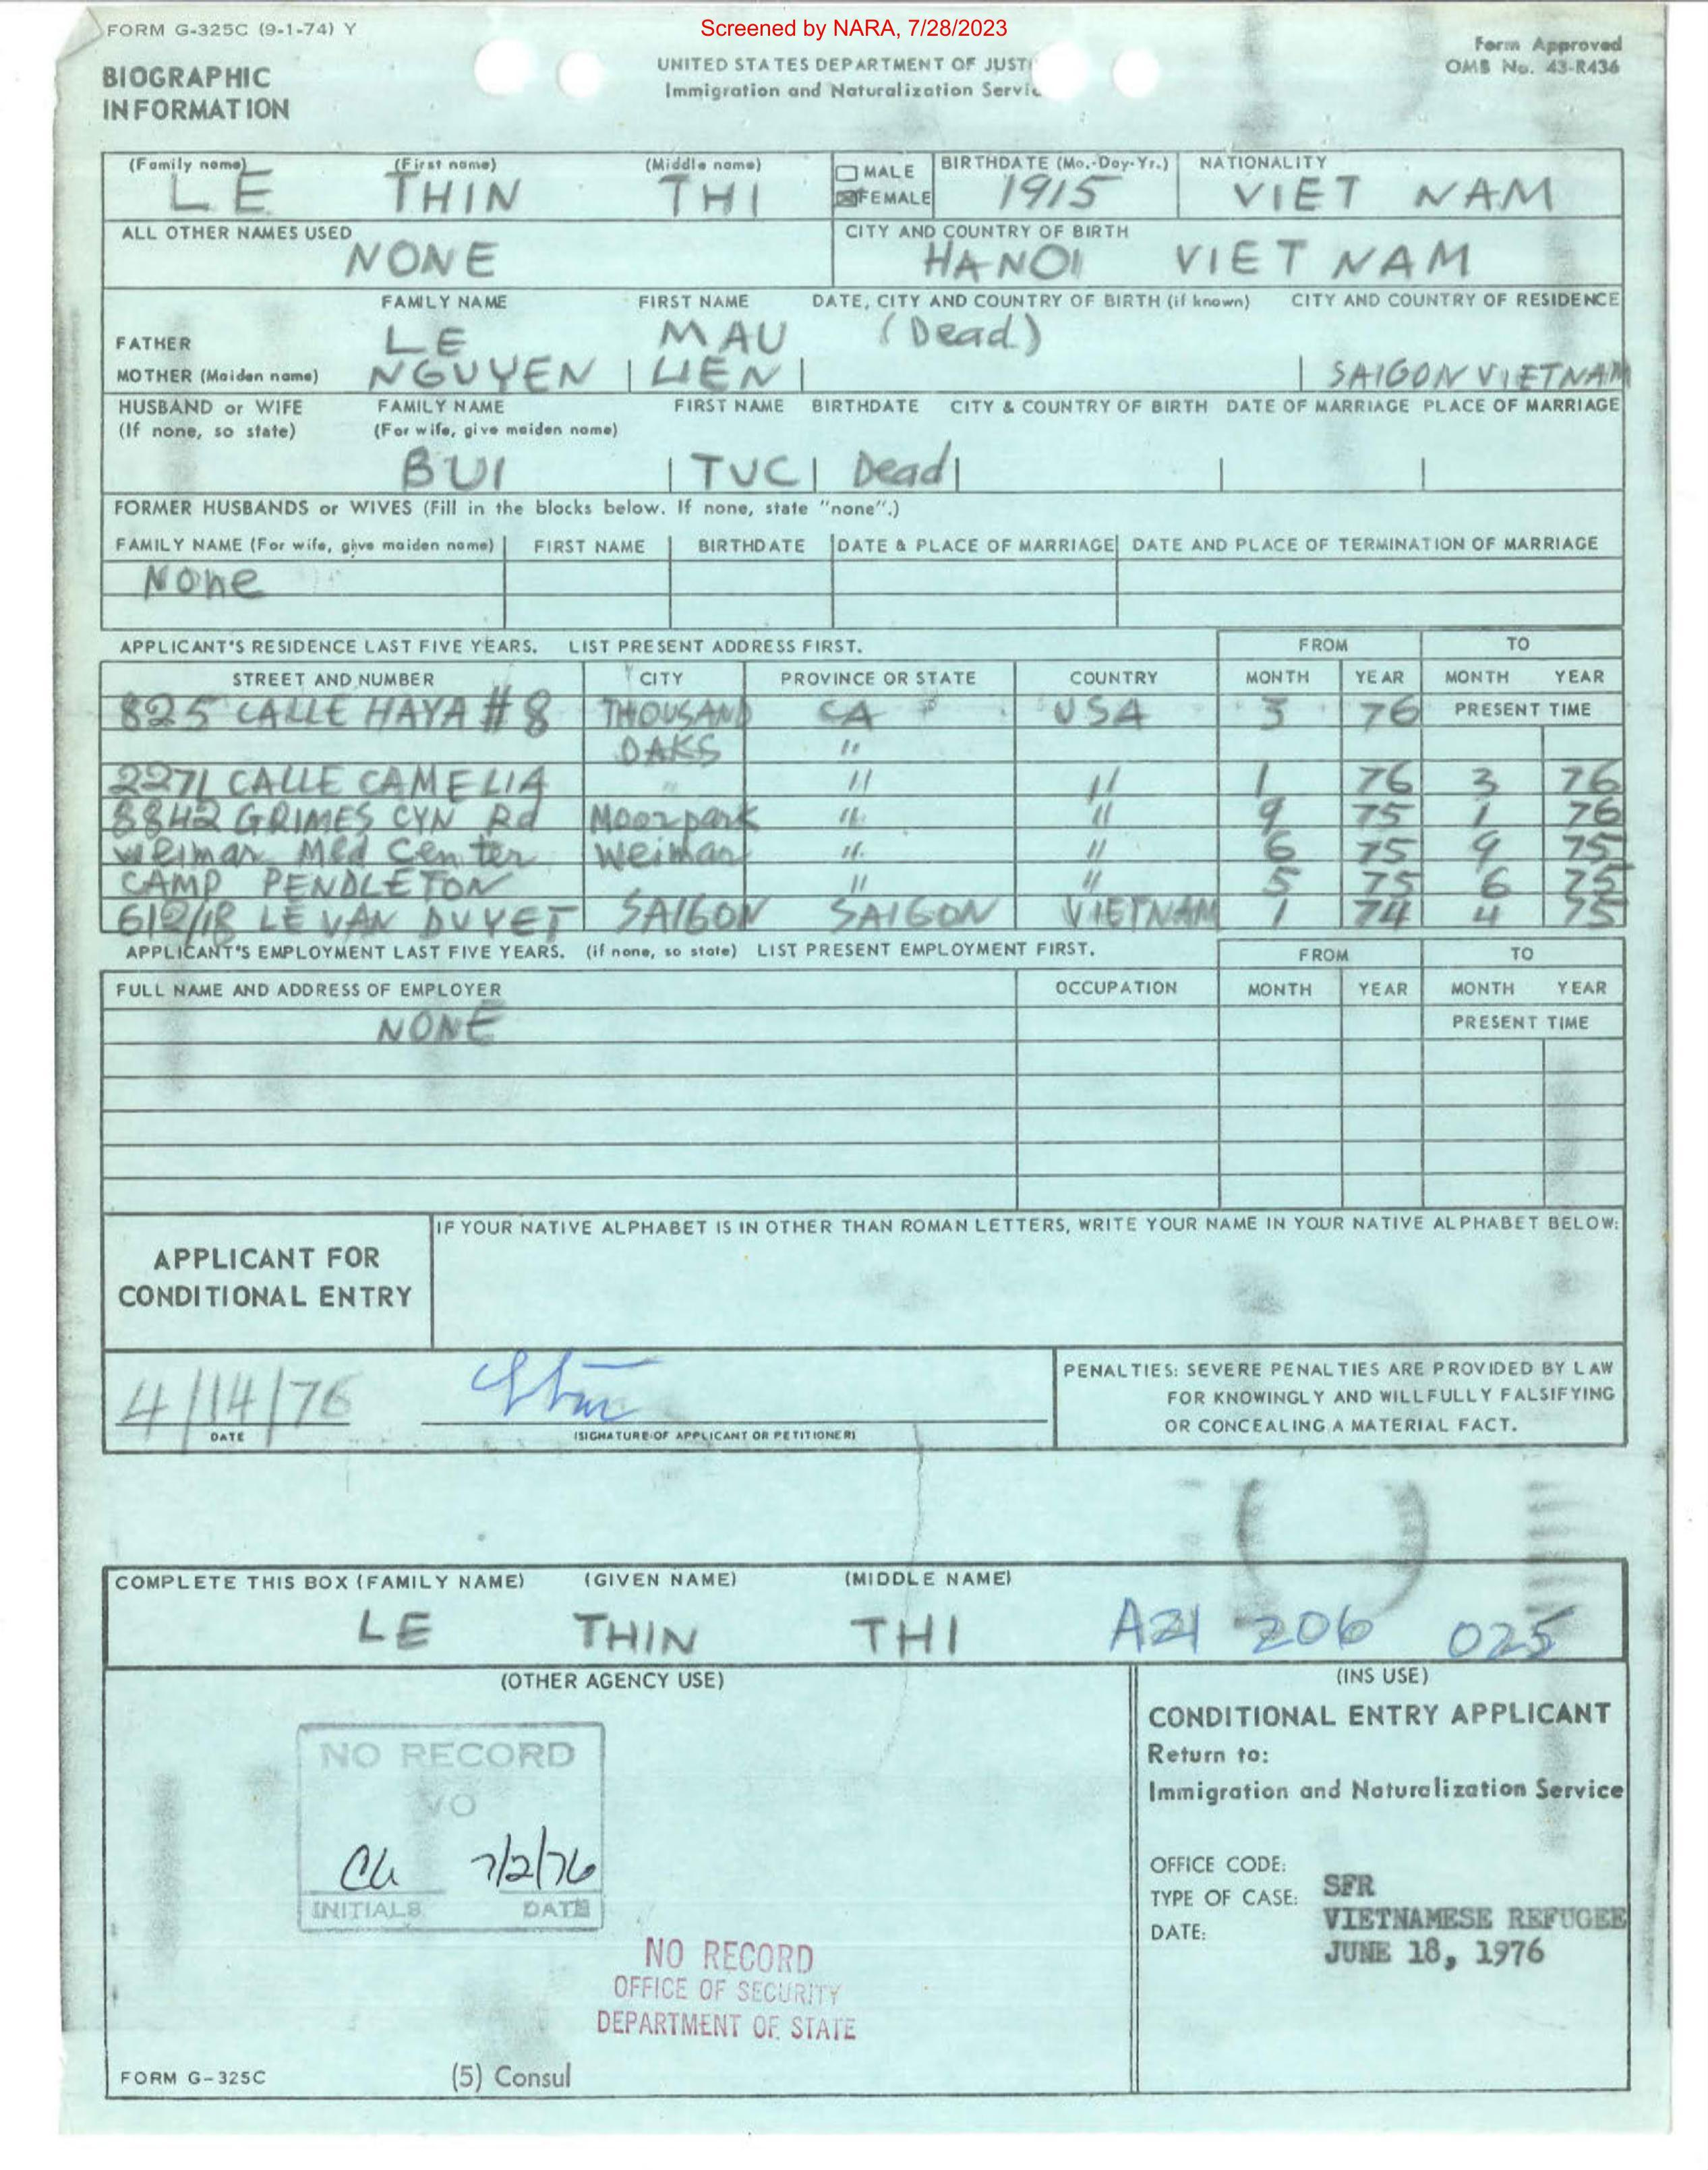 Screened by NARA, 7/28/2023
FORM G-325C (9-1-74) Y
Form Approved
OMB No. 43-R436
BIOGRAPHIC
INFORMATION
UNITED STATES DEPARTMENT OF JUSTI
Immigration and Naturalization Servic
(Family name) (First name) (Middle name)
LE THIN THI
MALE
FEMALE
BIRTHDATE (Mo.-Day-Yr.)
1915
NATIONALITY
VIET NAM
ALL OTHER NAMES USED
NONE
CITY AND COUNTRY OF BIRTH
HANOI VIET NAM
FAMILY NAME FIRST NAME DATE, CITY AND COUNTRY OF BIRTH (if known) CITY AND COUNTRY OF RESIDENCE
FATHER LE MAU (Dead)
MOTHER (Maiden name) NGUYEN LIEN SAIGON VIETNAM
HUSBAND or WIFE FAMILY NAME FIRST NAME BIRTHDATE CITY & COUNTRY OF BIRTH DATE OF MARRIAGE PLACE OF MARRIAGE
(If none, so state) (For wife, give maiden name)
BUI TUC Dead
FORMER HUSBANDS or WIVES (Fill in the blocks below. If none, state "none".)
FAMILY NAME (For wife, give maiden name) FIRST NAME BIRTHDATE DATE & PLACE OF MARRIAGE DATE AND PLACE OF TERMINATION OF MARRIAGE
None
APPLICANT'S RESIDENCE LAST FIVE YEARS. LIST PRESENT ADDRESS FIRST. FROM TO
STREET AND NUMBER CITY PROVINCE OR STATE COUNTRY MONTH YEAR MONTH YEAR
825 CALLE HAYA #8 THOUSAND CA USA 3 76 PRESENT TIME
OAKS "
2271 CALLE CAMELIA " " " 1 76 3 76
8842 GRIMES CYN Rd Moorpark " " 9 75 1 76
Weimar Med Center Weimar " " 6 75 9 75
CAMP PENDLETON " " 5 75 6 75
612/18 LE VAN DUYET SAIGON SAIGON VIETNAM 1 74 4 75
APPLICANT'S EMPLOYMENT LAST FIVE YEARS. (if none, so state) LIST PRESENT EMPLOYMENT FIRST. FROM TO
FULL NAME AND ADDRESS OF EMPLOYER OCCUPATION MONTH YEAR MONTH YEAR
NONE PRESENT TIME
IF YOUR NATIVE ALPHABET IS IN OTHER THAN ROMAN LETTERS, WRITE YOUR NAME IN YOUR NATIVE ALPHABET BELOW:
APPLICANT FOR
CONDITIONAL ENTRY
4/14/76
DATE
(SIGNATURE OF APPLICANT OR PETITIONER)
PENALTIES: SEVERE PENALTIES ARE PROVIDED BY LAW
FOR KNOWINGLY AND WILLFULLY FALSIFYING
OR CONCEALING A MATERIAL FACT.
COMPLETE THIS BOX (FAMILY NAME) (GIVEN NAME) (MIDDLE NAME)
LE THIN THI A21 206 025
(OTHER AGENCY USE)
NO RECORD
VO
7/2/76
INITIALS DATE
NO RECORD
OFFICE OF SECURITY
DEPARTMENT OF STATE
FORM G-325C
(5) Consul
(INS USE)
CONDITIONAL ENTRY APPLICANT
Return to:
Immigration and Naturalization Service
OFFICE CODE: SFR
TYPE OF CASE: VIETNAMESE REFUGEE
DATE: JUNE 18, 1976